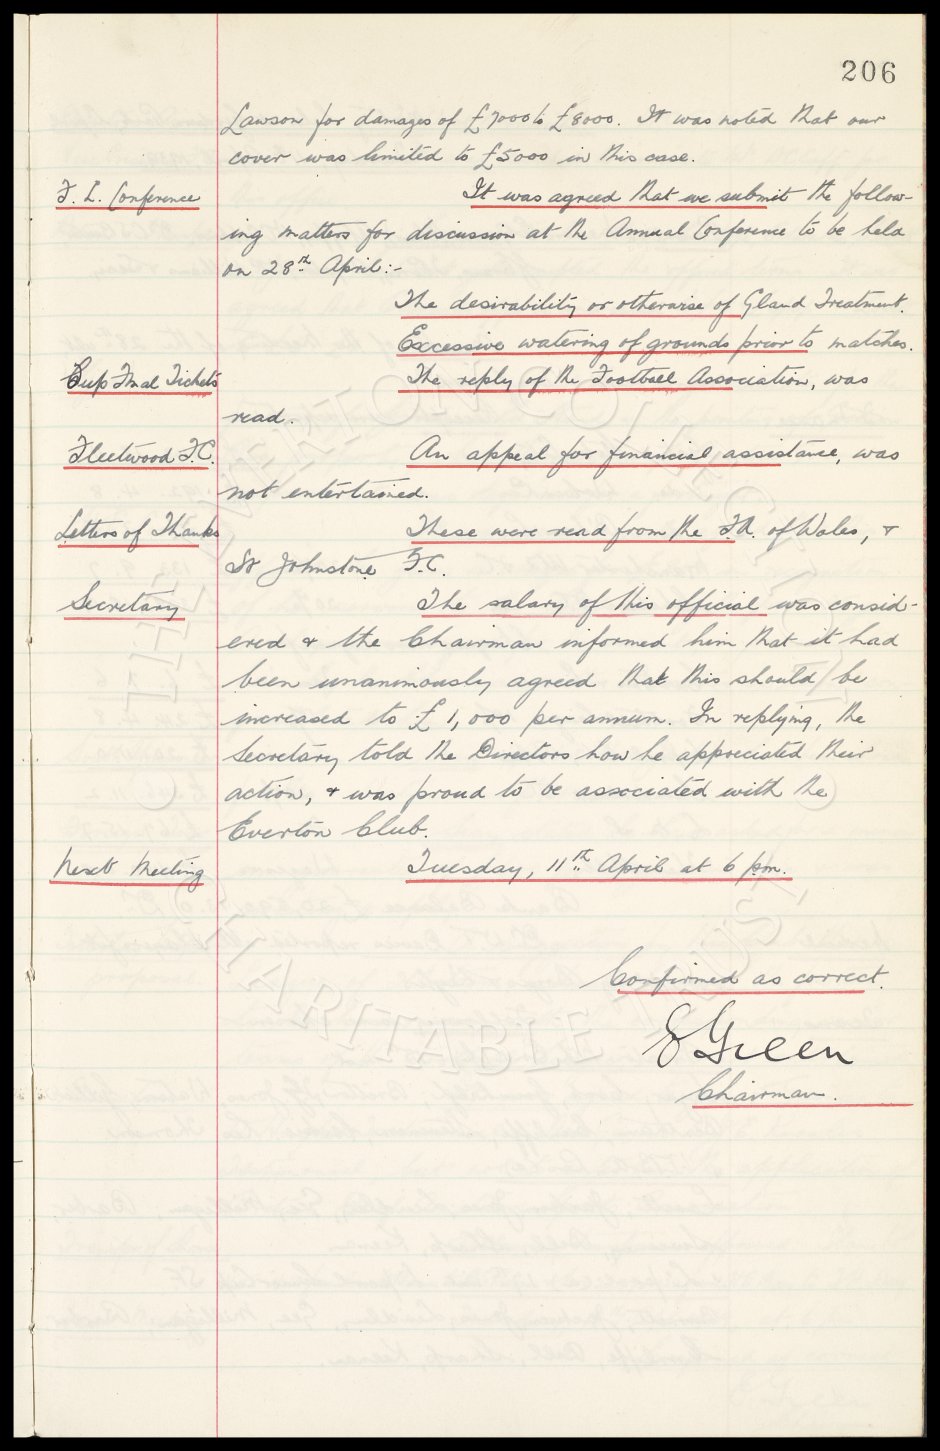 206
Lawson for damages of £7000 to £8000. It was noted that our
cover was limited to £5000 in this case.
F. L. Conference It was agreed that we submit the follow-
ing matters for discussion at the Annual Conference to be held
on 28th April:-
The desirability or otherwise of Gland Treatment.
Excessive watering of grounds prior to matches.
Cup Final Tickets The reply of the Football Association, was
read.
Fleetwood F.C. An appeal for financial assistance, was
not entertained.
Letters of Thanks These were read from the F.A. of Wales, &
St Johnstone F.C.
Secretary The salary of this official was consid-
ered & the Chairman informed him that it had
been unanimously agreed that this should be
increased to £1,000 per annum. In replying, the
Secretary told the Directors how he appreciated their
action, & was proud to be associated with the
Everton Club.
Next Meeting Tuesday, 11th April at 6 p.m.
Confirmed as correct.
E Green
Chairman.
THE EVERTON COLLECTION
CHARITABLE TRUST